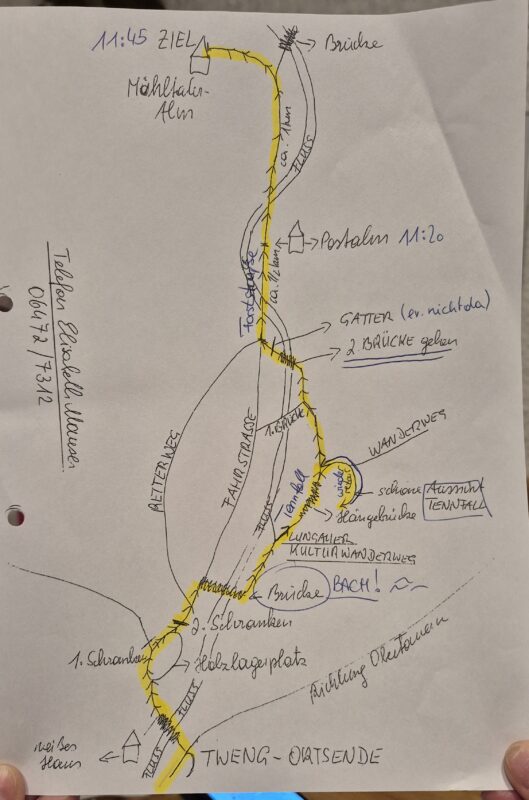 11:45 ZIEL
Brücke
Alm
ca. 1 km
FLUSS
Postalm 11:20
ca. 1/2 km
Forststraße
GATTER (ev. nicht da)
2. BRÜCKE gehen
Telefon Elisabeth
06472/7312
1. BRÜCKE
WANDERWEG
REITERWEG
FAHRSTRASSE
schöne Aussicht
TENNFALL
Hängebrücke
FLUSS
LUNGAUER
KULTURWANDERWEG
Brücke BACH!
2. Schranken
1. Schranken
Holzlagerplatz
Richtung Obertauern
FLUSS
weißes
Haus
FLUSS
TWENG-ORTSENDE